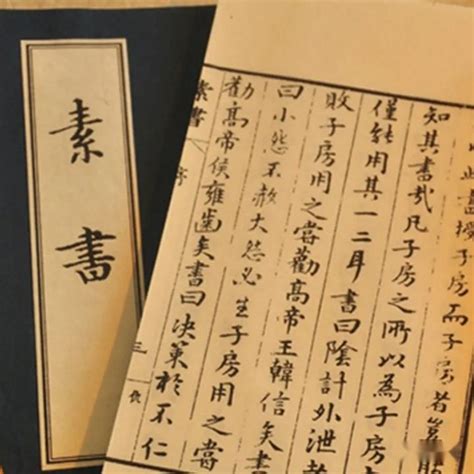 素書
此書授子房而子房者豈
知其書哉凡子房之所以為子房
僅能用其一二耳書曰陰計外泄
敗子房用之嘗勸高帝王韓信矣書
曰小怨不赦大怨必生子房用之嘗
勸高帝侯雍齒矣書曰決策於不仁
素書 序 三